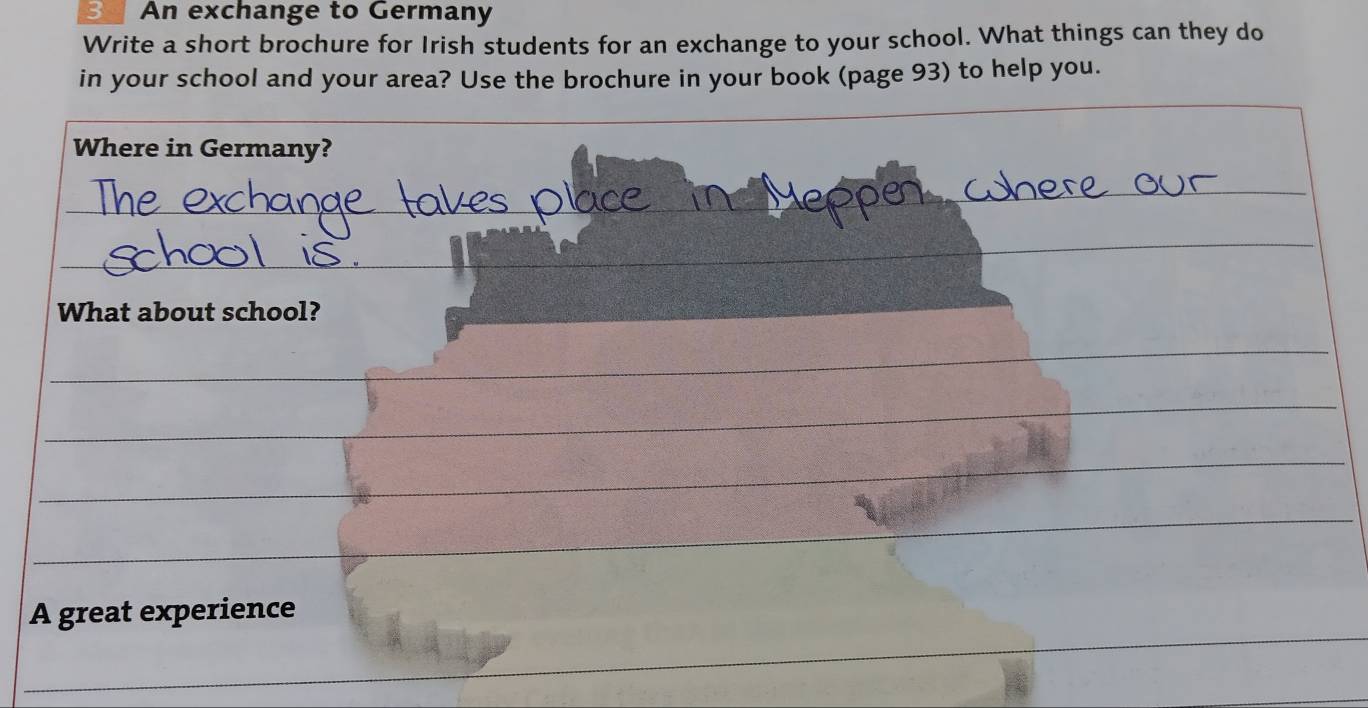 3 An exchange to Germany
Write a short brochure for Irish students for an exchange to your school. What things can they do
in your school and your area? Use the brochure in your book (page 93) to help you.
Where in Germany?
The exchange takes place in Meppen where our
school is.
What about school?
A great experience